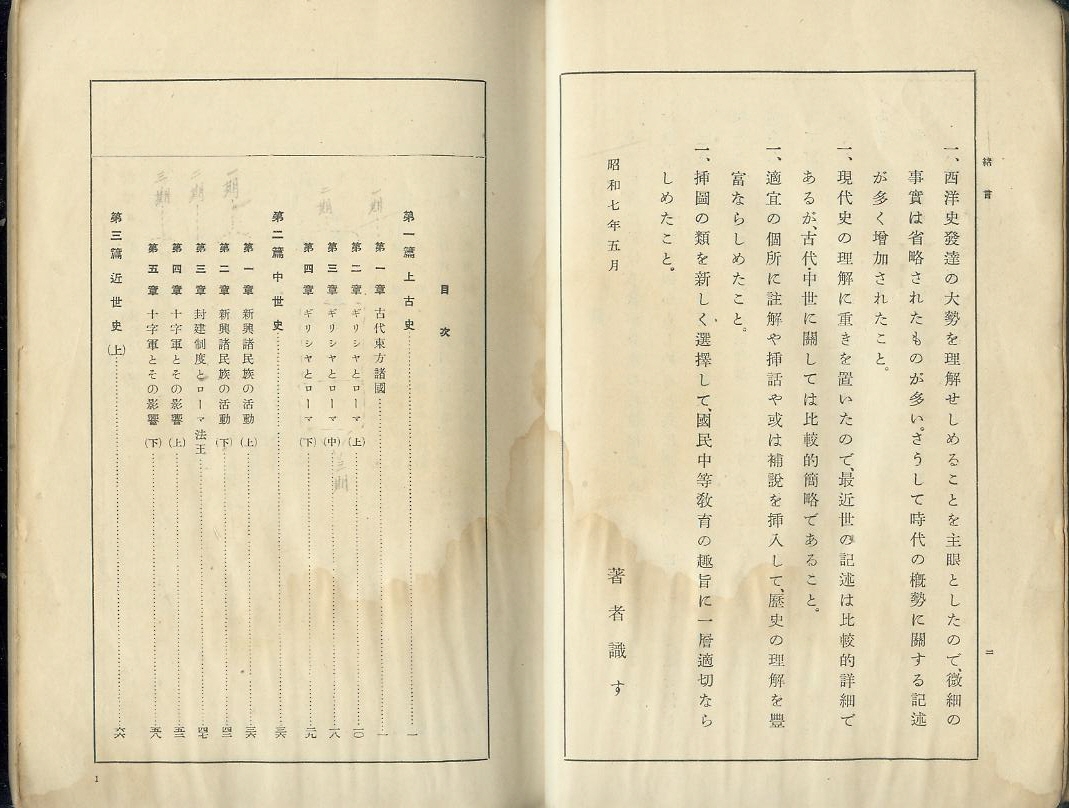 緒言
二
一、西洋史發達の大勢を理解せしめることを主眼としたので、微細の
事實は省略されたものが多い。さうして時代の概勢に關する記述
が多く增加されたこと。
一、現代史の理解に重きを置いたので、最近世の記述は比較的詳細で
あるが、古代・中世に關しては比較的簡略であること。
一、適宜の個所に註解や挿話や或は補說を挿入して、歷史の理解を豐
富ならしめたこと。
一、挿圖の類を新しく選擇して、國民中等敎育の趣旨に一層適切なら
しめたこと。
昭和七年五月
著者識す
目次
第一篇 上古史……一
第一章 古代東方諸國……一
第二章 ギリシヤとローマ(上)……一〇
第三章 ギリシヤとローマ(中)……一八
第四章 ギリシヤとローマ(下)……二九
第二篇 中世史……三六
第一章 新興諸民族の活動(上)……三六
第二章 新興諸民族の活動(下)……四二
第三章 封建制度とローマ法王……四七
第四章 十字軍とその影響(上)……五二
第五章 十字軍とその影響(下)……五八
第三篇 近世史(上)……六六
一期
二期
三期
一期
二期
三期
1